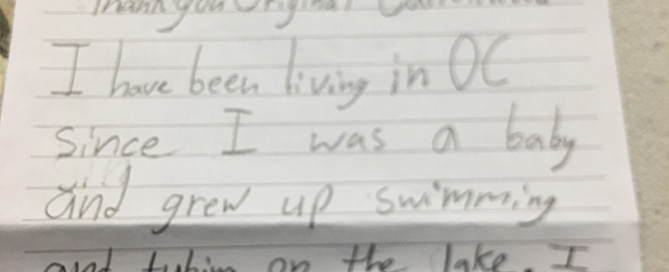 Thank you Original
I have been living in OC
since I was a baby
and grew up swimming
and tubing on the lake. I